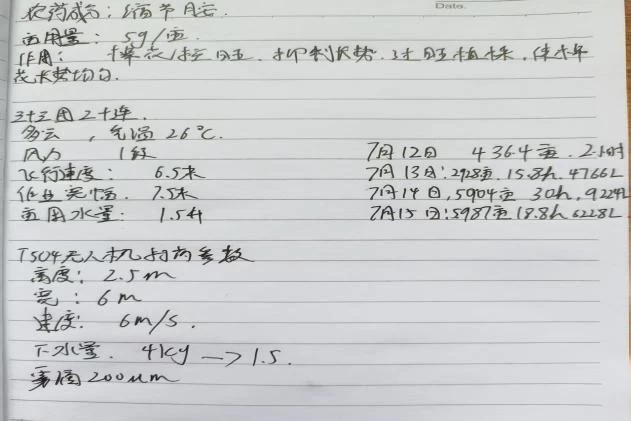 Date.
农药成分：缩节胺.
亩用量： 5g/亩.
作用： 棉花控旺. 抑制长势. 对旺植株, 使棉
花长势均匀.
三十三团2十连.
多云 , 气温 26℃.
风力 1级
飞行速度： 6.5米
作业宽幅. 7.5米
亩用水量： 1.5升
7月12日 436.4亩. 2.1小时
7月13日:2928亩. 15.8h. 4766L
7月14日,5904亩 30h, 9224L
7月15日:3987亩 18.8h 6228L
T504无人机 参数
高度： 2.5m
宽： 6m
速度： 6m/s.
下水量. 4kg → 1.5.
雾滴200um